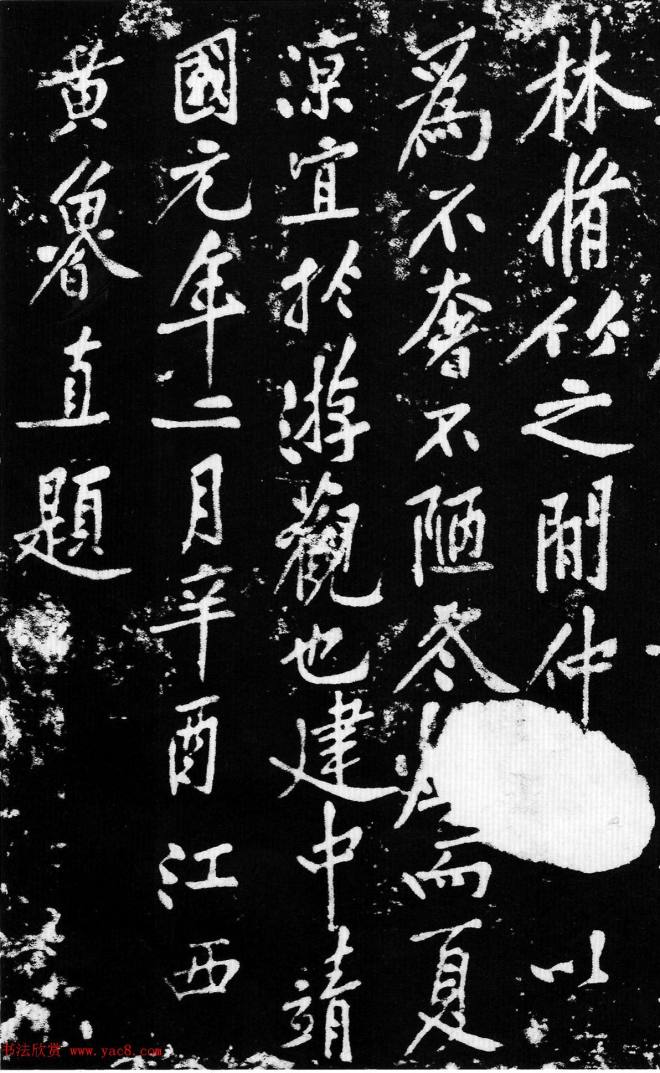 林脩竹之間仲以
為不奢不陋冬而夏
涼宜於游觀也建中靖
國元年二月辛酉江西
黄魯直題
书法欣赏 www.yac8.com